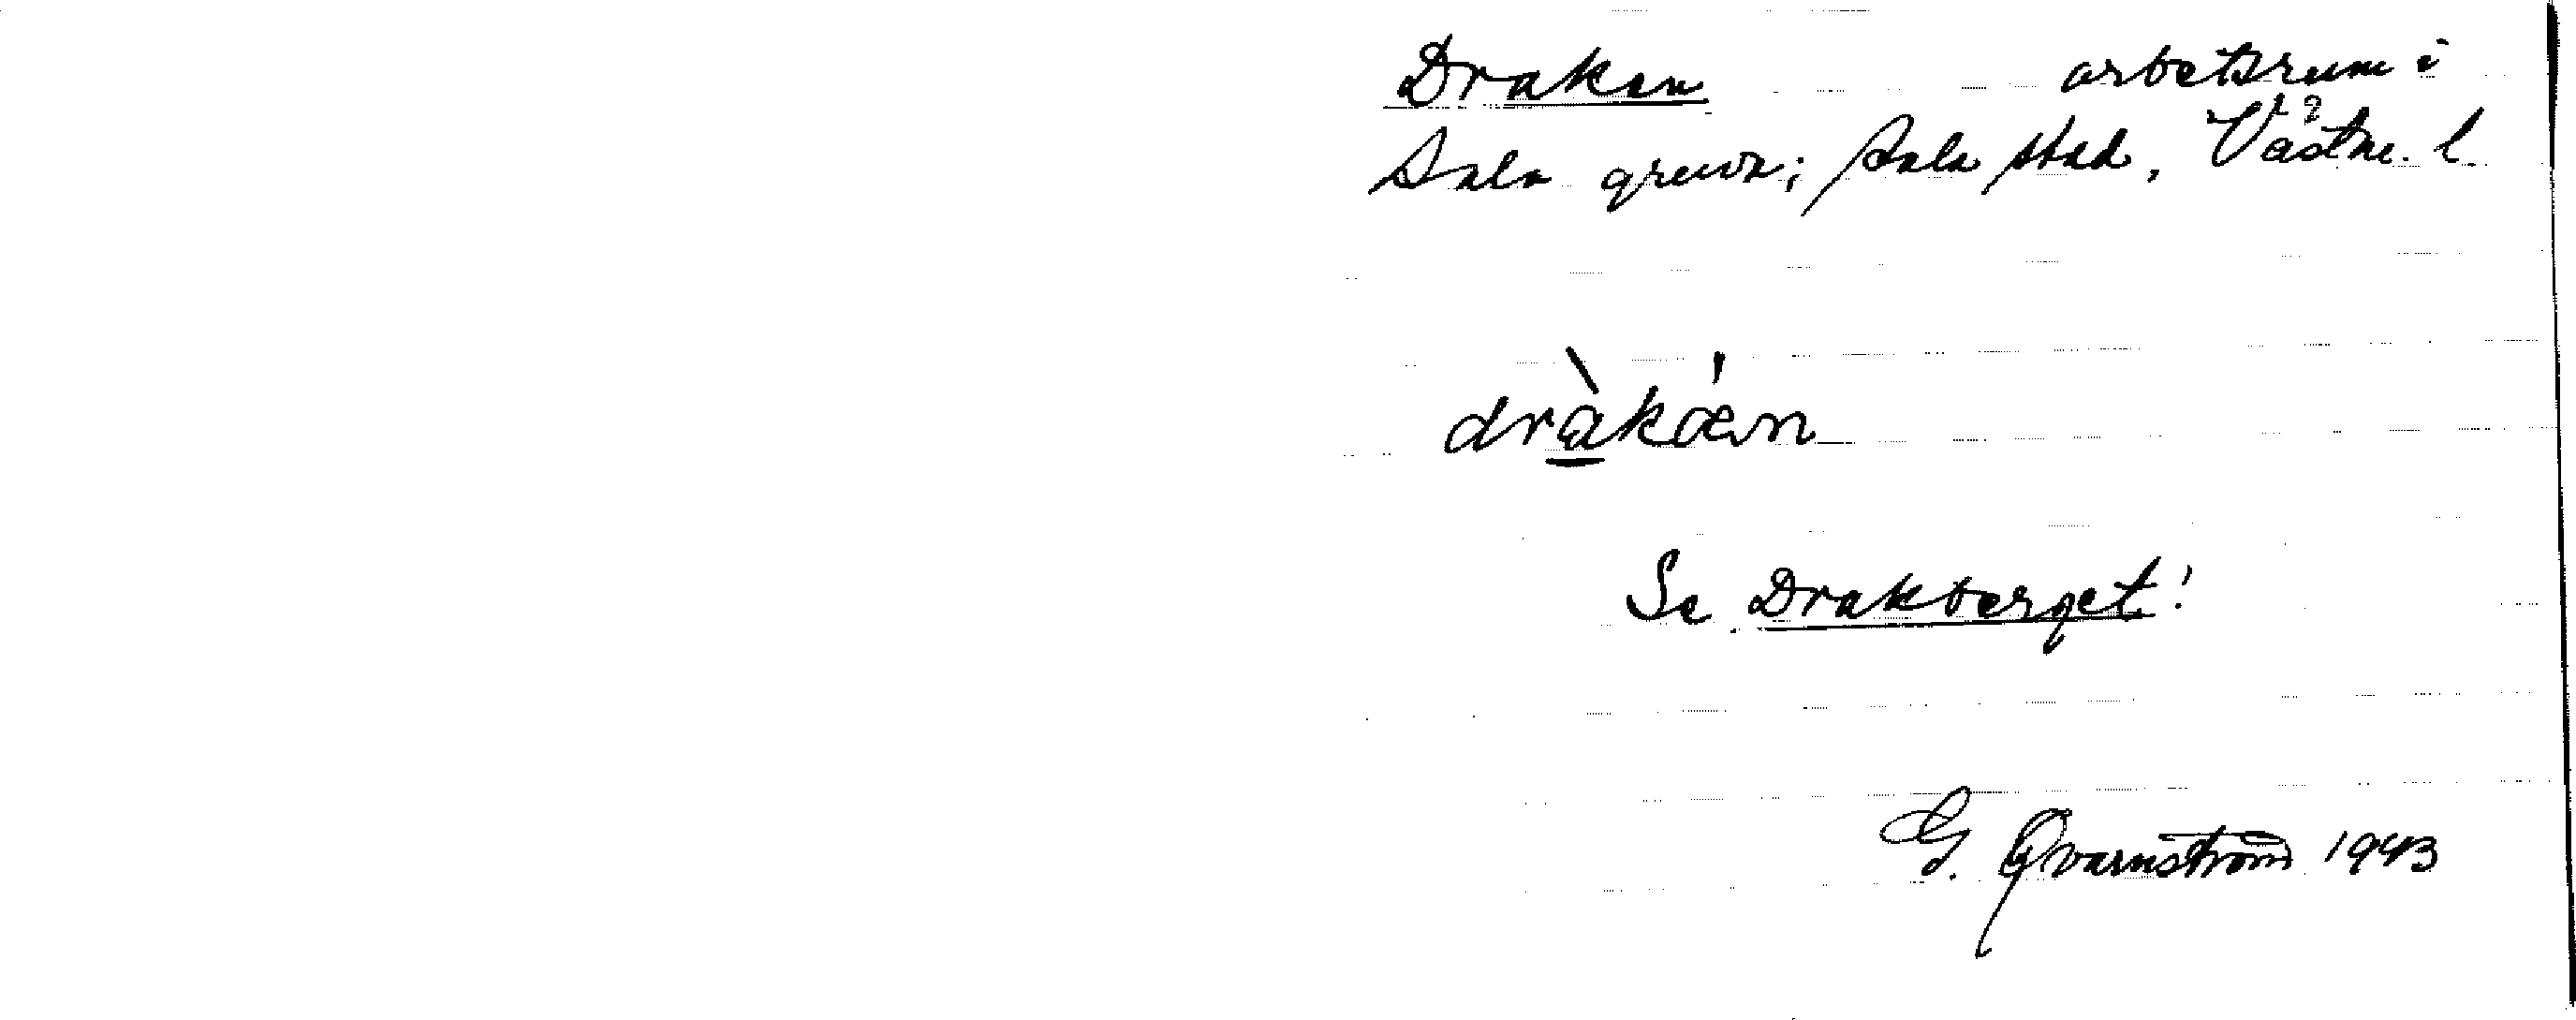 Draken arbetsrum i
Sala gruva; Sala stad, Västm. l
dràkæ̀n
Se Drakberget!
G. Qvarnström 1943